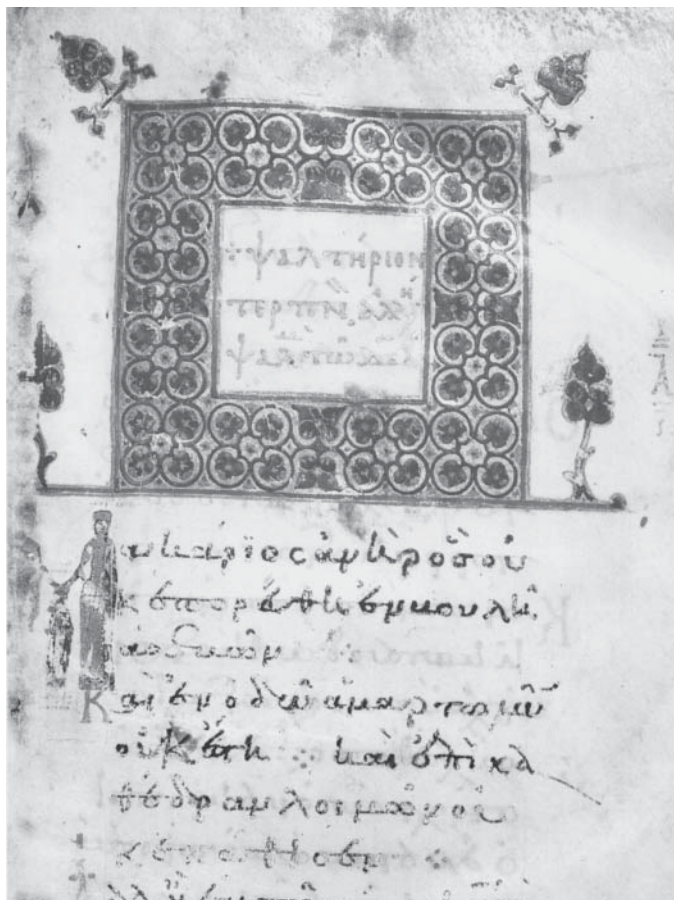 + ψαλτήριον
ακάριος ἀνὴρ ὃς οὐ
κ ἐπορεύθη ἐν βουλῇ
ἀσεβῶν :
Καὶ ἐν ὁδῷ ἁμαρτωλῶν
οὐκ ἔστη : καὶ ἐπὶ κα
θέδραν λοιμῶν οὐ
κ ἐκάθισεν :